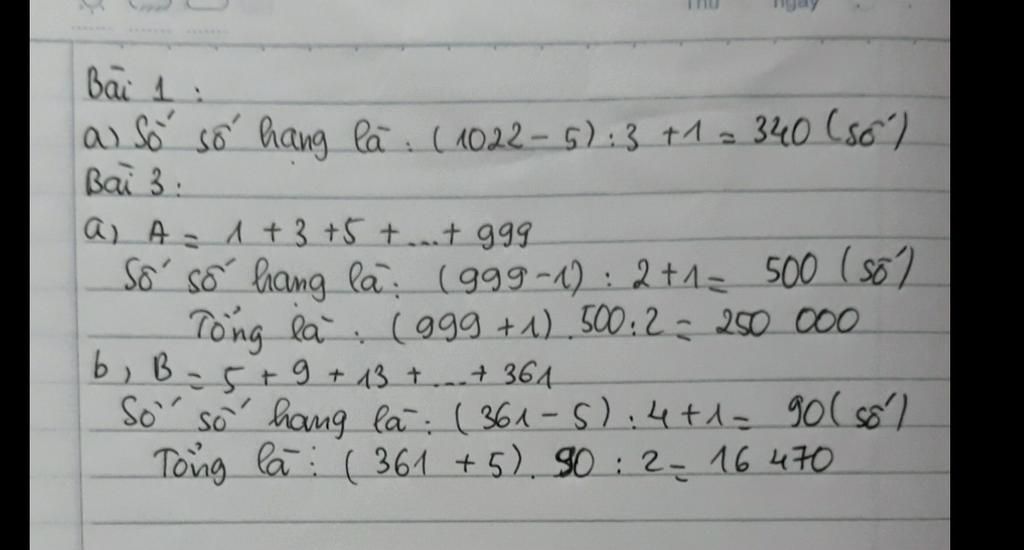 Thứ ngày
Bài 1 :
a) Số số hạng là : (1022 - 5) : 3 + 1 = 340 (số)
Bài 3 :
a) A = 1 + 3 + 5 + ... + 999
Số số hạng là : (999 - 1) : 2 + 1 = 500 (số)
Tổng là : (999 + 1) . 500 : 2 = 250 000
b, B = 5 + 9 + 13 + ... + 361
Số số hạng là : (361 - 5) : 4 + 1 = 90 (số)
Tổng là : (361 + 5) . 90 : 2 = 16 470